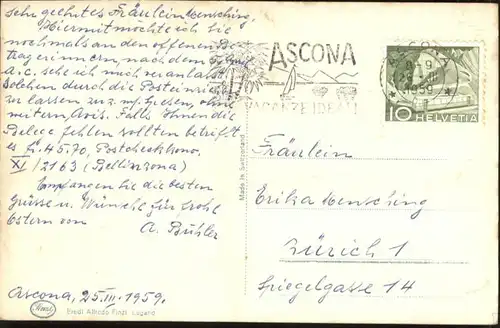 Sehr geehrtes Fräulein Mensching,
Hiermit möchte ich Sie
nochmals an den offenen Be-
trag erinnern, nach dem
a.c. sehe ich mich veranlasst
Solchen durch die Post einziehen
zu lassen zu Spesen, ohne
weitern Avis. Falls Ihnen die
Belege fehlen sollten betrifft
es fr. 45.70, Postcheckkono.
XI/2163 (Bellinzona)
Empfangen Sie die besten
Grüsse u. Wünsche für frohe
Ostern von A. Bühler
Ascona, 25.III.1959.
Eredi Alfredo Finzi, Lugano
Made in Switzerland
ASCONA
VACANZE IDEALI
ASCONA
1959
10 HELVETIA
Fräulein
Erika Mensching
Zürich 1
Spiegelgasse 14